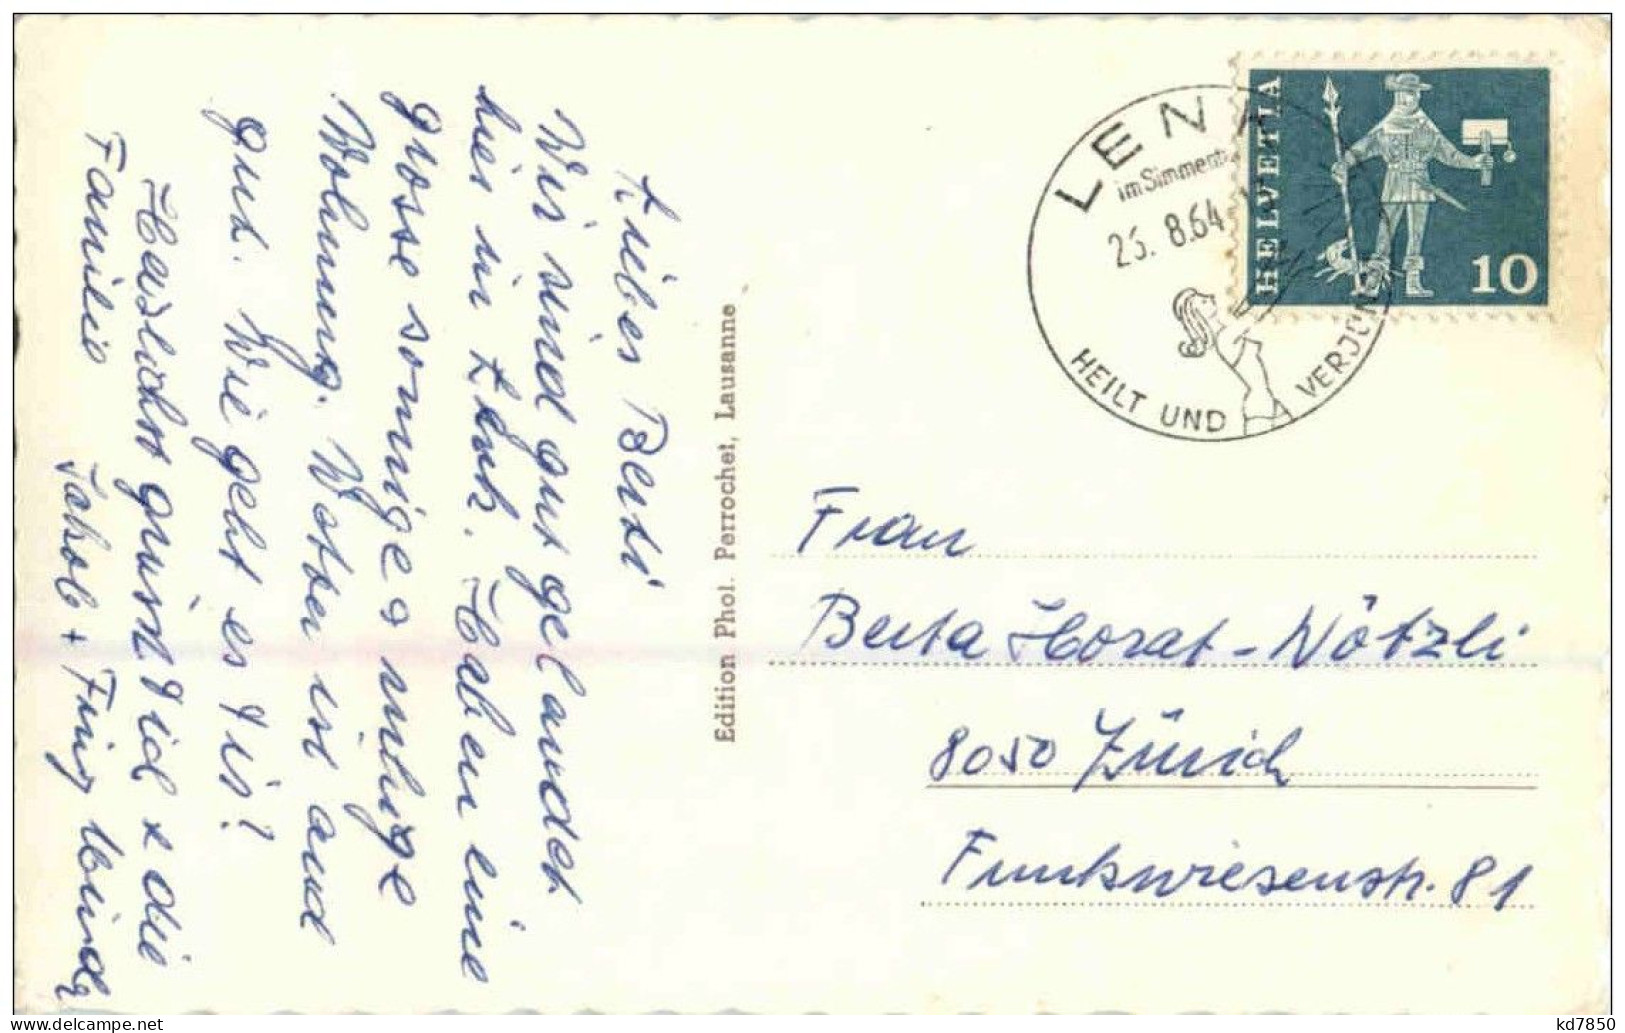 Liebes Berti
Wir sind gut gelandet
hier in Lenk. Haben eine
grosse sonnige & ruhige
Wohnung. Wetter ist auch
gut. Wie geht es Dir?
Herzlichst grüsst Dich & die
Familie
Jakob +
Edition Phot. Perrochet, Lausanne
LENK
im Simmental
23. 8.64
HEILT UND VERJÜNGT
HELVETIA
10
Frau
Berta Horat-Nötzli
8050 Zürich
Funkwiesenstr. 81
kd7850